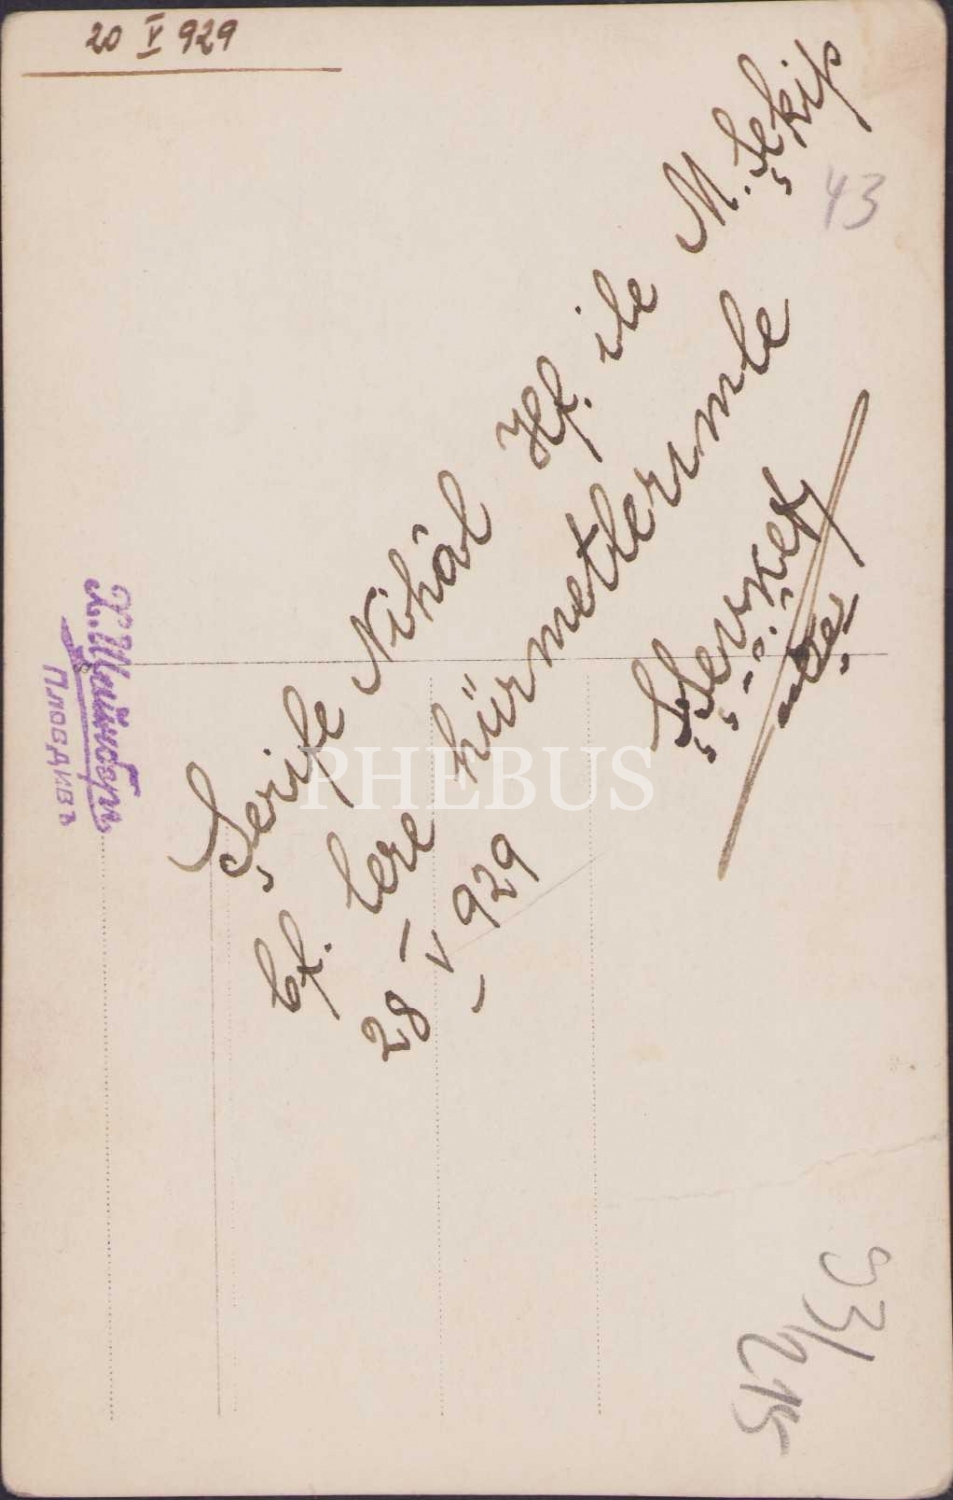 20 V 929
Şerife Nihâl Hf. ile M. Şekip
bf. lere hürmetlerimle
28 V 929
Şevket
43
Пловдивъ
PHEBUS
93/215